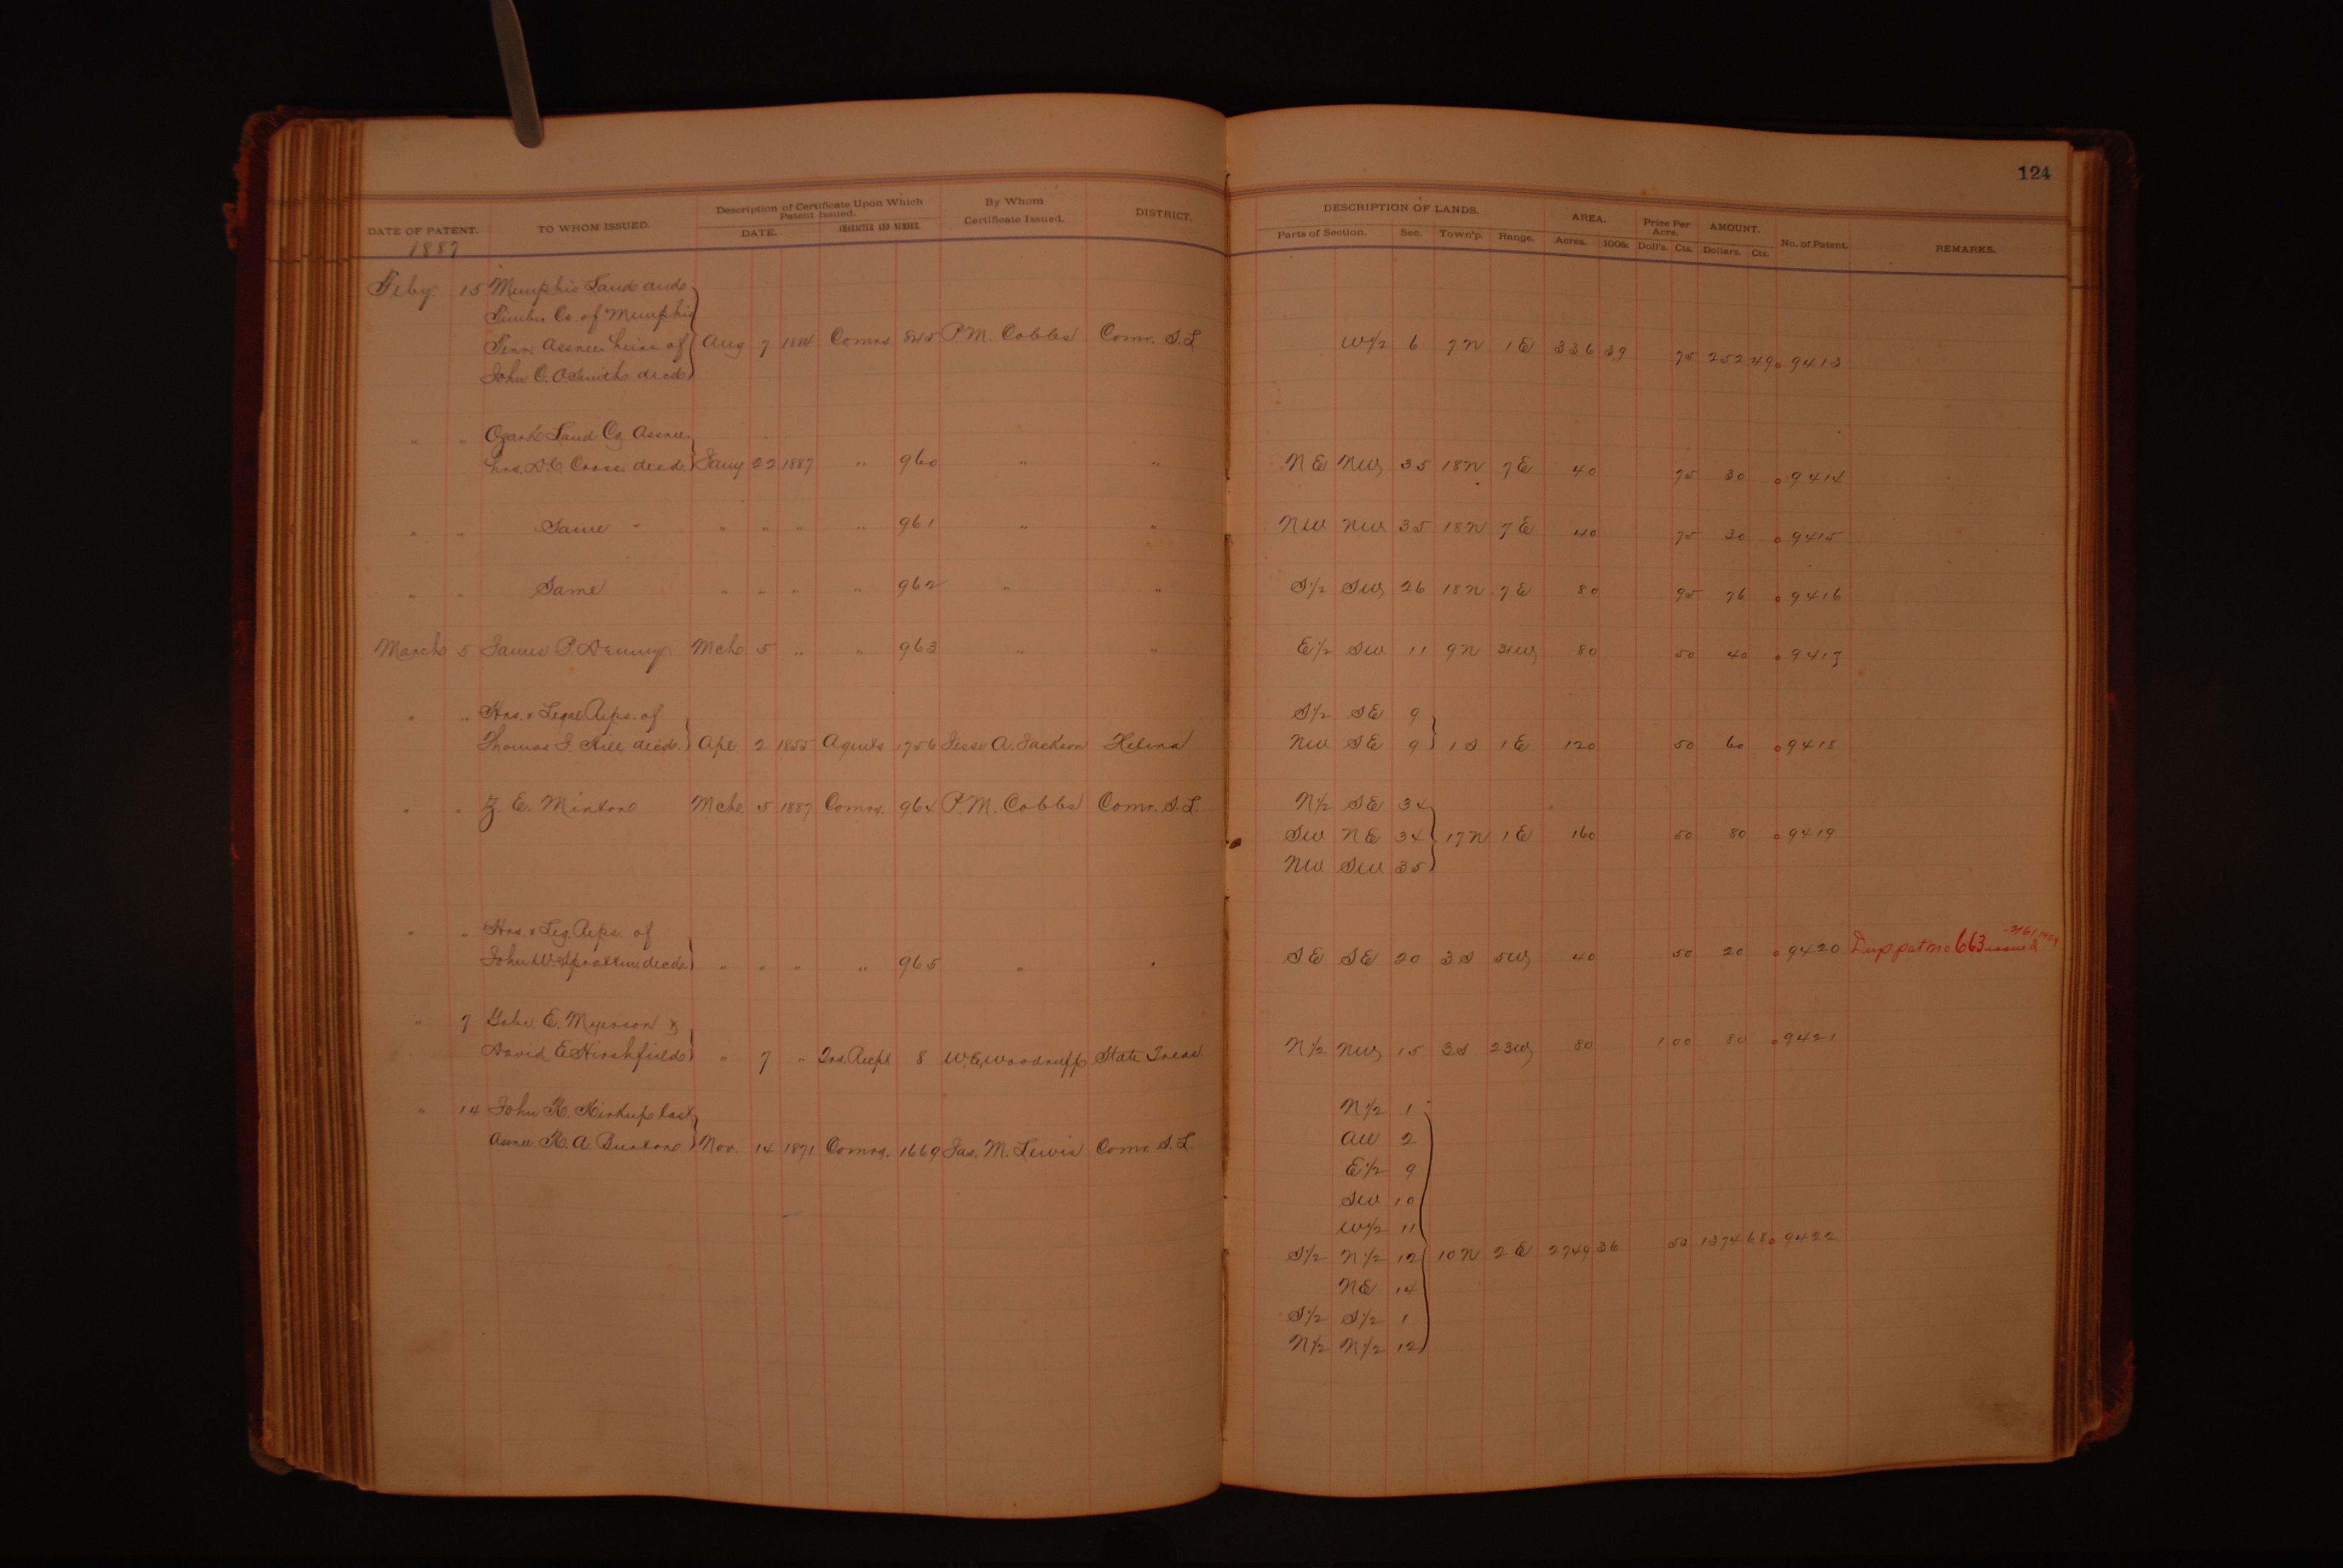 124
DATE OF PATENT. TO WHOM ISSUED. Description of Certificate Upon Which Patent Issued. DATE. CHARACTER AND NUMBER. By Whom Certificate Issued. DISTRICT. DESCRIPTION OF LANDS. Parts of Section. Sec. Town'p. Range. AREA. Acres. 100th. Price Per Acre. Doll's. Cts. AMOUNT. Dollars. Cts. No. of Patent. REMARKS.
1887
Feby. 15 Memphis Land and
Timber Co. of Memphis
Tenn. Assnee heirs of Aug 7 1884 Comrs P. M. Cobbs Comr. S. L W 1/2 6 7N 1E 336 39 75 252 49 9413
John C. O. Smith decd
" " Ozark Land Co Assnee
hrs. D. C. Cross decd Jany 22 1887 " 960 " " NE NW 35 18N 7E 40 75 30 9414
" " Same " " " " 961 " " NW NW 35 18N 7E 40 75 30 9415
" " Same " " " " 962 " " S 1/2 SW 26 18N 7E 80 95 76 9416
March 5 James P. Denny Mch 5 " " 963 " " E 1/2 SW 11 9N 31W 80 50 40 9417
" " Hrs. & Legal Reps. of S 1/2 SE 9
Thomas J. Hill, decd. Apl 2 1855 Agents 1756 Jesse A. Jackson Helena NW SE 9 1S 1E 120 50 60 9418
" " Z. E. Minton Mch. 5 1887 Comrs. 964 P. M. Cobbs Comr. S. L. N 1/2 SE 34
SW NE 34 17N 1E 160 50 80 9419
NW SW 35
" " Hrs. & Leg. Reps. of
John W. decd. " " " " 965 " " SE SE 20 3S 5W 40 50 20 9420 Dup pat no 663 issued
" 7 Gabe E. Myerson &
David E. Hirshfield " 7 " Trs. Recpt 8 W. E. Woodruff State Treas N 1/2 NW 15 3S 23W 80 1 00 80 9421
" 14 John K. Kirkup last N 1/2 1
Assnee. K. A. Burton Nov. 14 1871 Comrs. 1669 Jas. M. Lewis Comr. S. L. All 2
E 1/2 9
SW 10
W 1/2 11
S 1/2 N 1/2 12 10N 2E 2749 36 50 1374 68 9422
NE 14
S 1/2 S 1/2 1
N 1/2 N 1/2 12